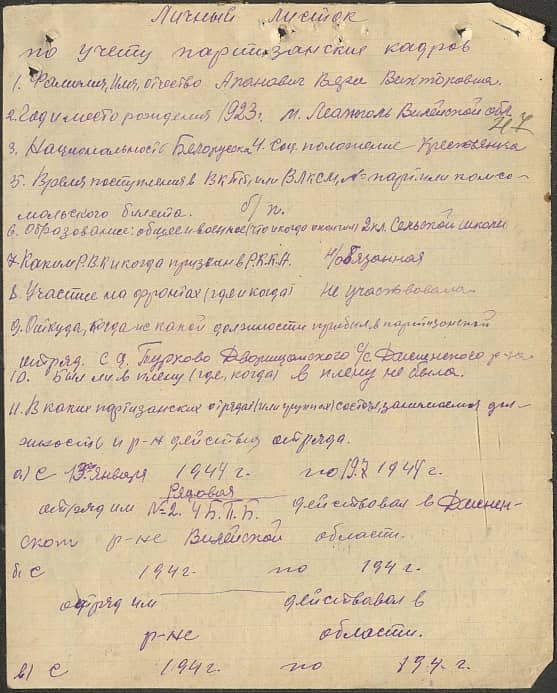 Личный листок
по учету партизанских кадров
1. Фамилия, Имя, отчество Апанович Вера Викторовна.
2. Год и место рождения 1923г. м. Вилейской обл
47
3. Национальность Белоруска 4. Соц. положение Крестьянка
5. Время поступления в ВКП(б), или ВЛКСМ, № парт или комсо-
мольского билета. б/п.
6. Образование: общее и военное (что и когда окончил) 2 кл. Сельской школы
7. Каким Р.В.К и когда призван в Р.К.К.А. н/обязанная
8. Участие на фронтах (где и когда) Не участвовала
9. Откуда, когда и с какой должности прибыл в партизанский
отряд. С д. Турково с/с р-на
10. Был ли в плену (где, когда) в плену не была.
11. В каких партизанских отрядах (или группах) состоял, занимаемая дол-
жность и р-н действия отряда.
а) С января 1944 г. по 1944 г.
Рядовая
отряд им №2. 4 Б.П.Б. действовал в
ском р-не Вилейской области.
б) С 194 г. по 194 г.
отряд им действовал в
р-не области.
в) С 194 г. по 194 г.